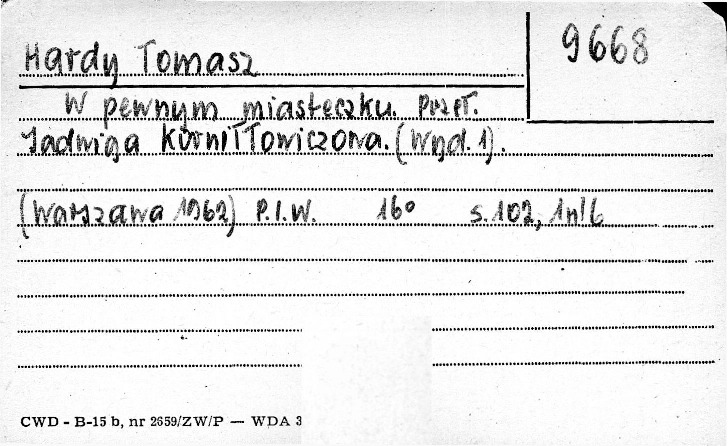 9668
Hardy Tomasz
W pewnym miasteczku. Przeł.
Jadwiga Korniłłowiczowa. (Wyd. 1).
(Warszawa 1962) P.I.W. 16° s. 102, 1nlb
CWD - B-15 b, nr 2659/ZW/P — WDA 3